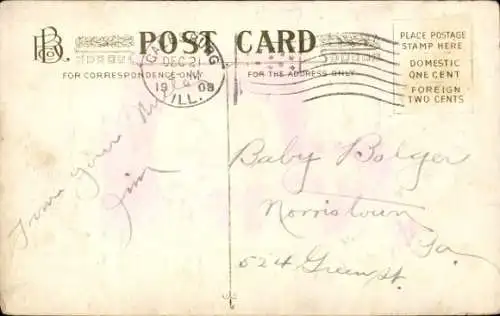 POST CARD
FOR CORRESPONDENCE ONLY
FOR THE ADDRESS ONLY
GALESBURG
DEC 21
1908
ILL.
PLACE POSTAGE
STAMP HERE
DOMESTIC
ONE CENT
FOREIGN
TWO CENTS
From your
Jim
Baby Bolger
Norristown
Pa.
524 Green St.